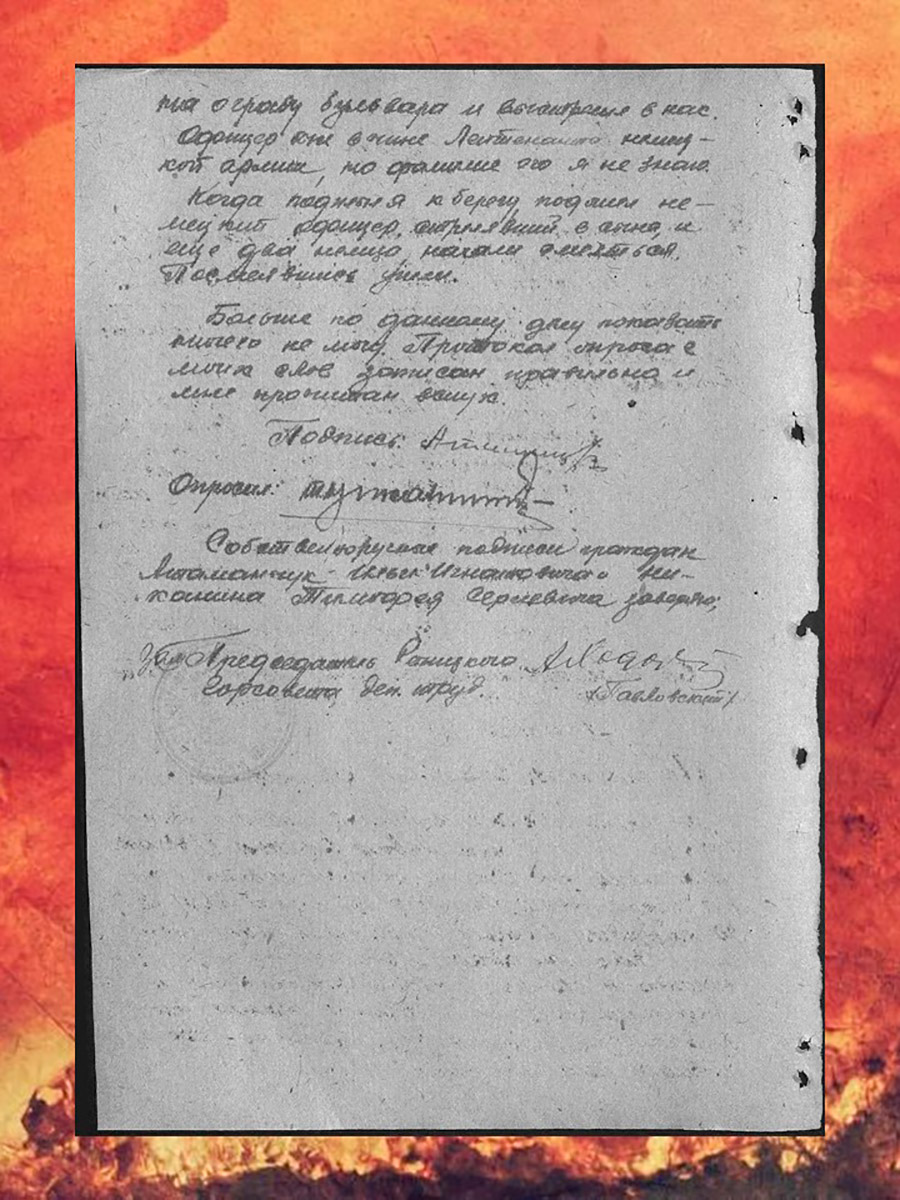 на ограду бульвара и выстрелил в нас.
Офицер был в чине Лейтенанта немец-
кой армии, но фамилие его я не знаю.
Когда поднялся к берегу подошли не-
мецкий офицер, стрелявший в сына, и
еще два немца начали смеяться.
Посмеявшись ушли.
Больше по данному делу показать
ничего не могу. Протокол опроса с
моих слов записан правильно и
мне прочитан вслух.
Подпись:
Опросил:
Собственоручные подписи граждан
Атаманчук Игнатовича и
Сергеевича заверяю;
Зам Председатель
Горсовета деп. труд.
(Павловский)